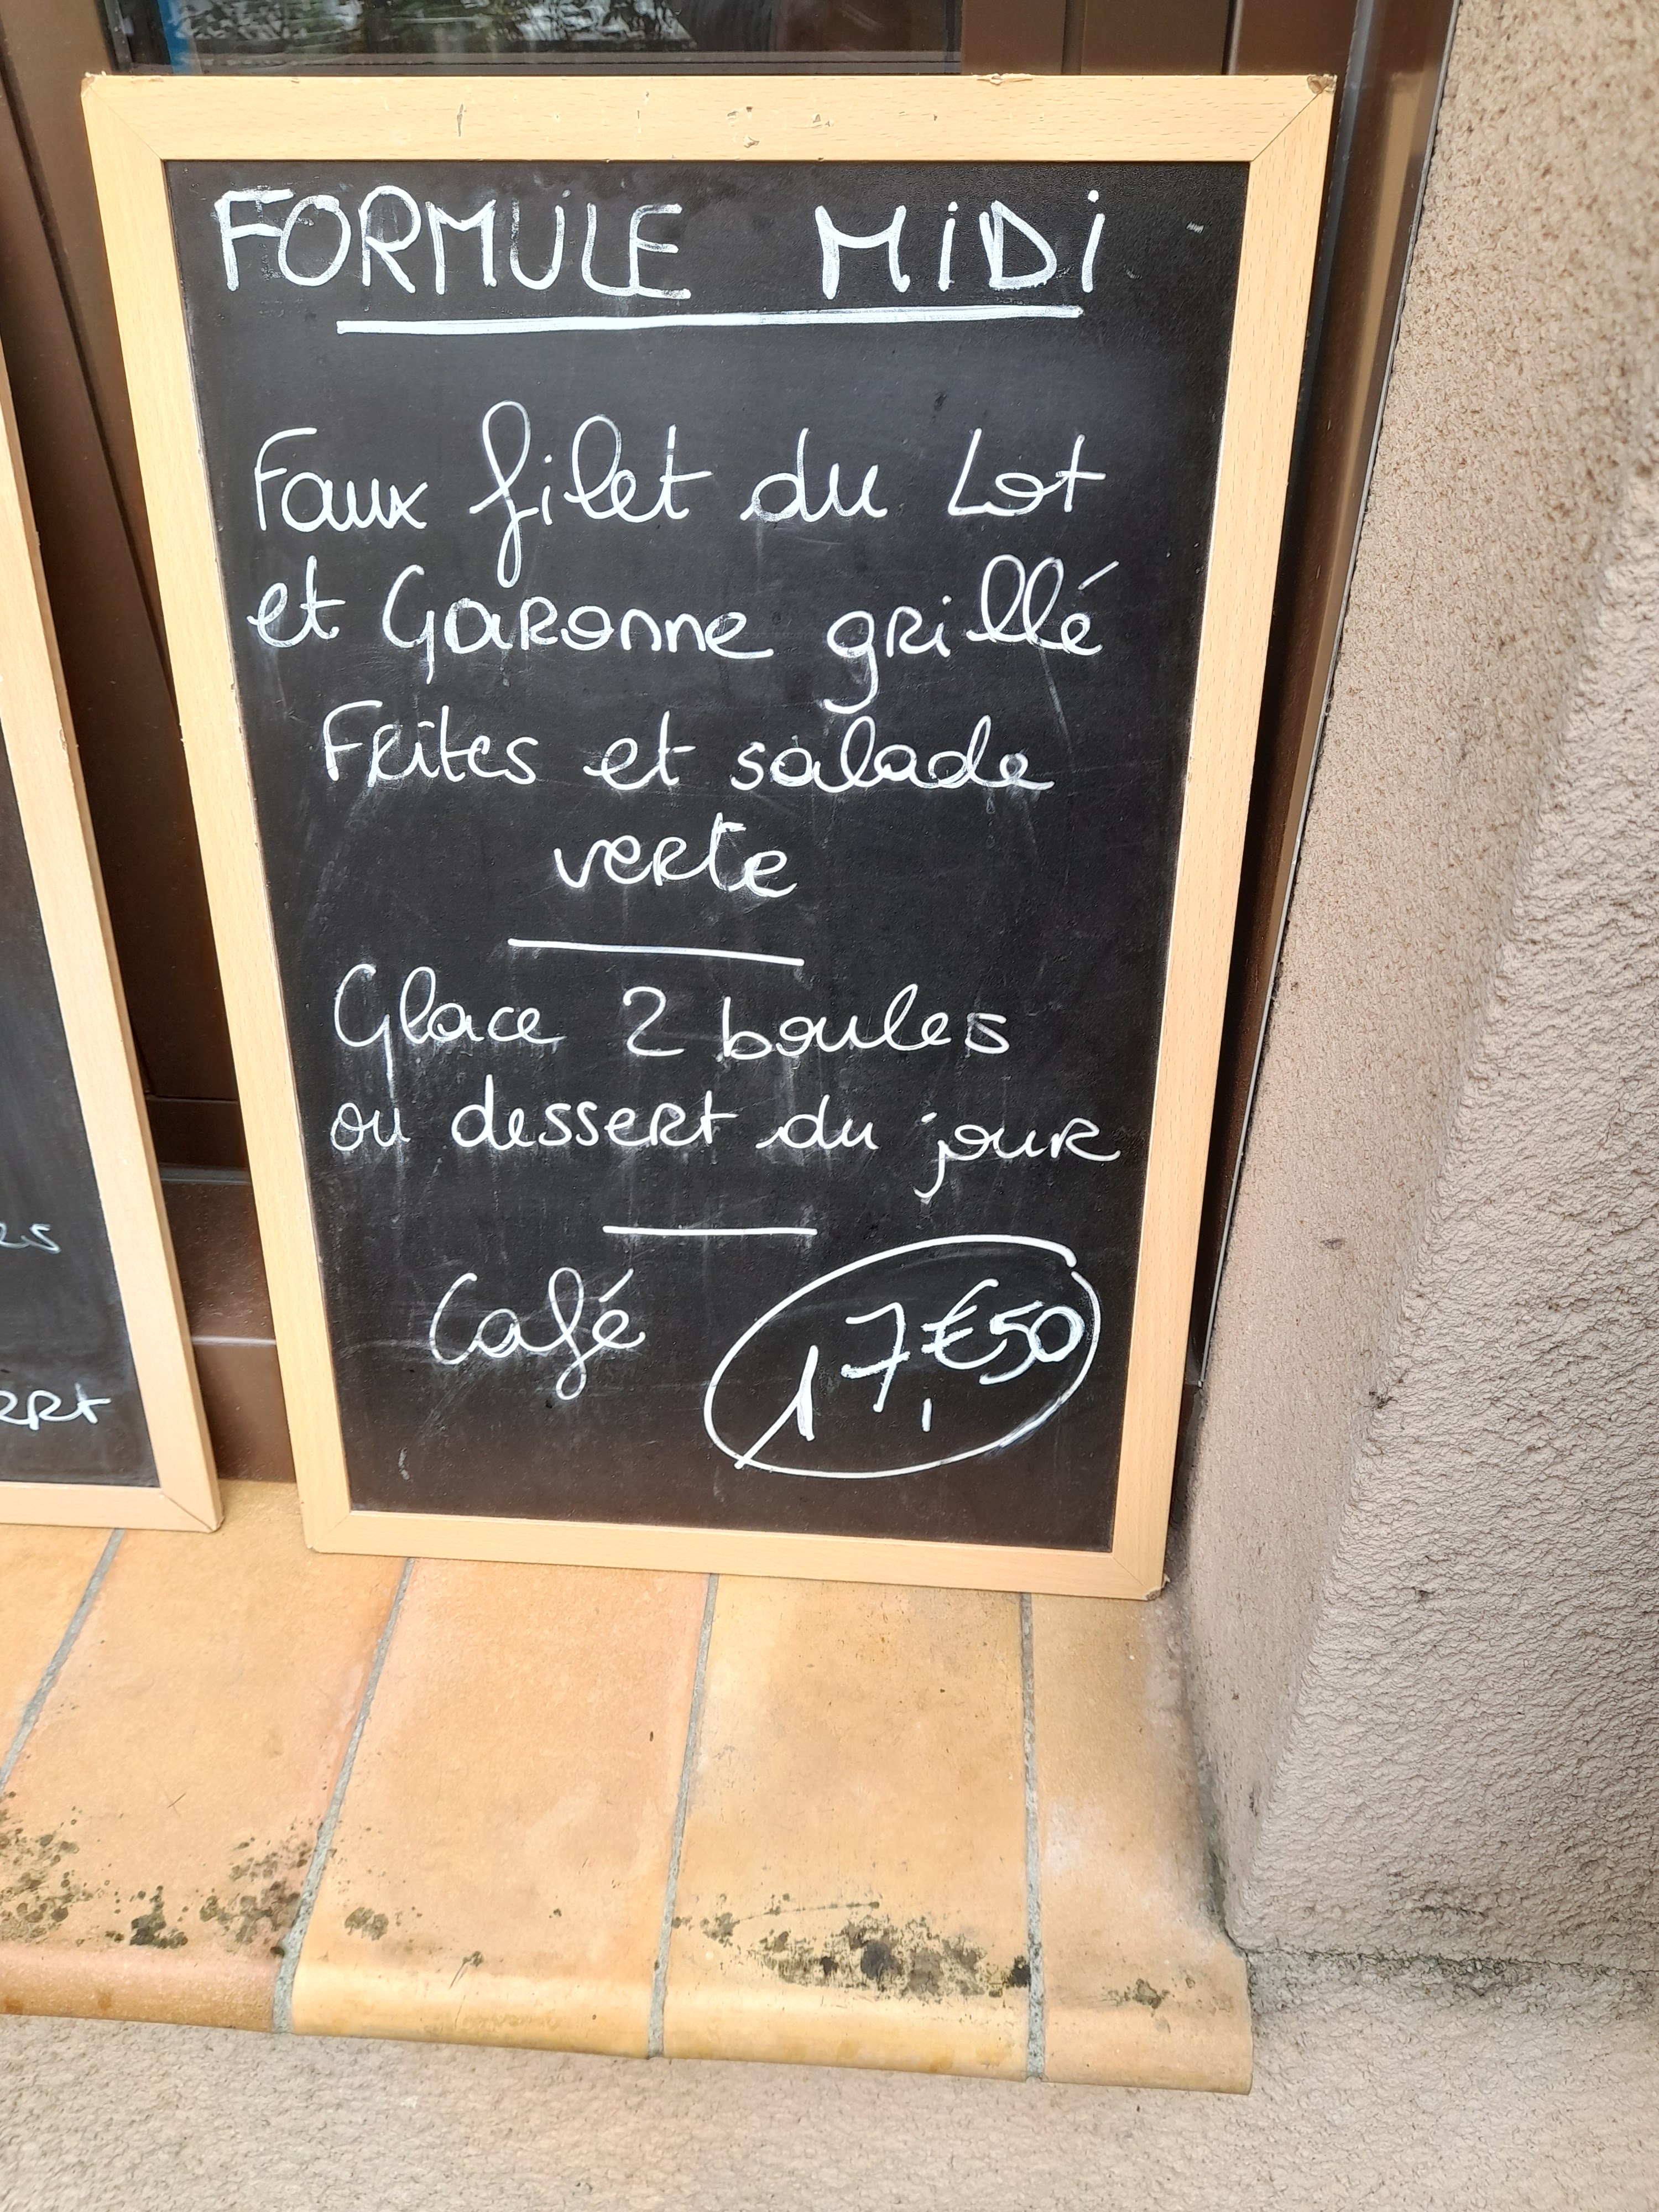 FORMULE MiDi
Faux filet du Lot
et Garonne grillé
Frites et salade
verte
Glace 2 boules
ou dessert du jour
Café 17,€50